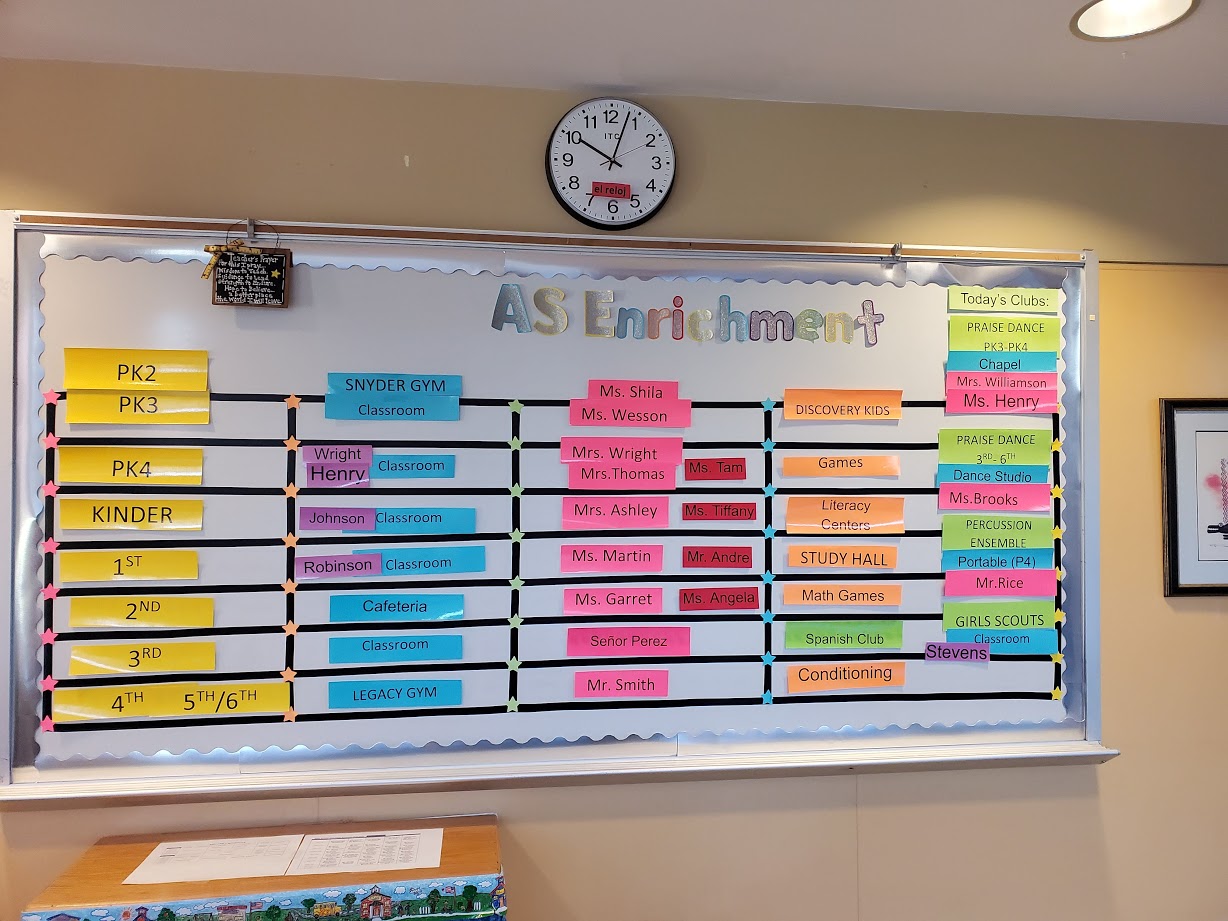 11 12 1
10 2
9 3
8 4
7 6 5
ITC
el reloj
Teacher's Prayer
For this I pray...
Wisdom to Teach,
Guidance to Lead
Strength to Endure.
Hope to Believe...
a better place
the World I will leave
AS Enrichment
PK2
PK3
SNYDER GYM
Classroom
Ms. Shila
Ms. Wesson
DISCOVERY KIDS
PK4
Wright
Henry
Classroom
Mrs. Wright
Mrs.Thomas
Ms. Tam
Games
KINDER
Johnson
Classroom
Mrs. Ashley
Ms. Tiffany
Literacy
Centers
1ST
Robinson
Classroom
Ms. Martin
Mr. Andre
STUDY HALL
2ND
Cafeteria
Ms. Garret
Ms. Angela
Math Games
3RD
Classroom
Señor Perez
Spanish Club
4TH 5TH/6TH
LEGACY GYM
Mr. Smith
Conditioning
Today's Clubs:
PRAISE DANCE
PK3-PK4
Chapel
Mrs. Williamson
Ms. Henry
PRAISE DANCE
3RD- 6TH
Dance Studio
Ms.Brooks
PERCUSSION
ENSEMBLE
Portable (P4)
Mr.Rice
GIRLS SCOUTS
Classroom
Stevens